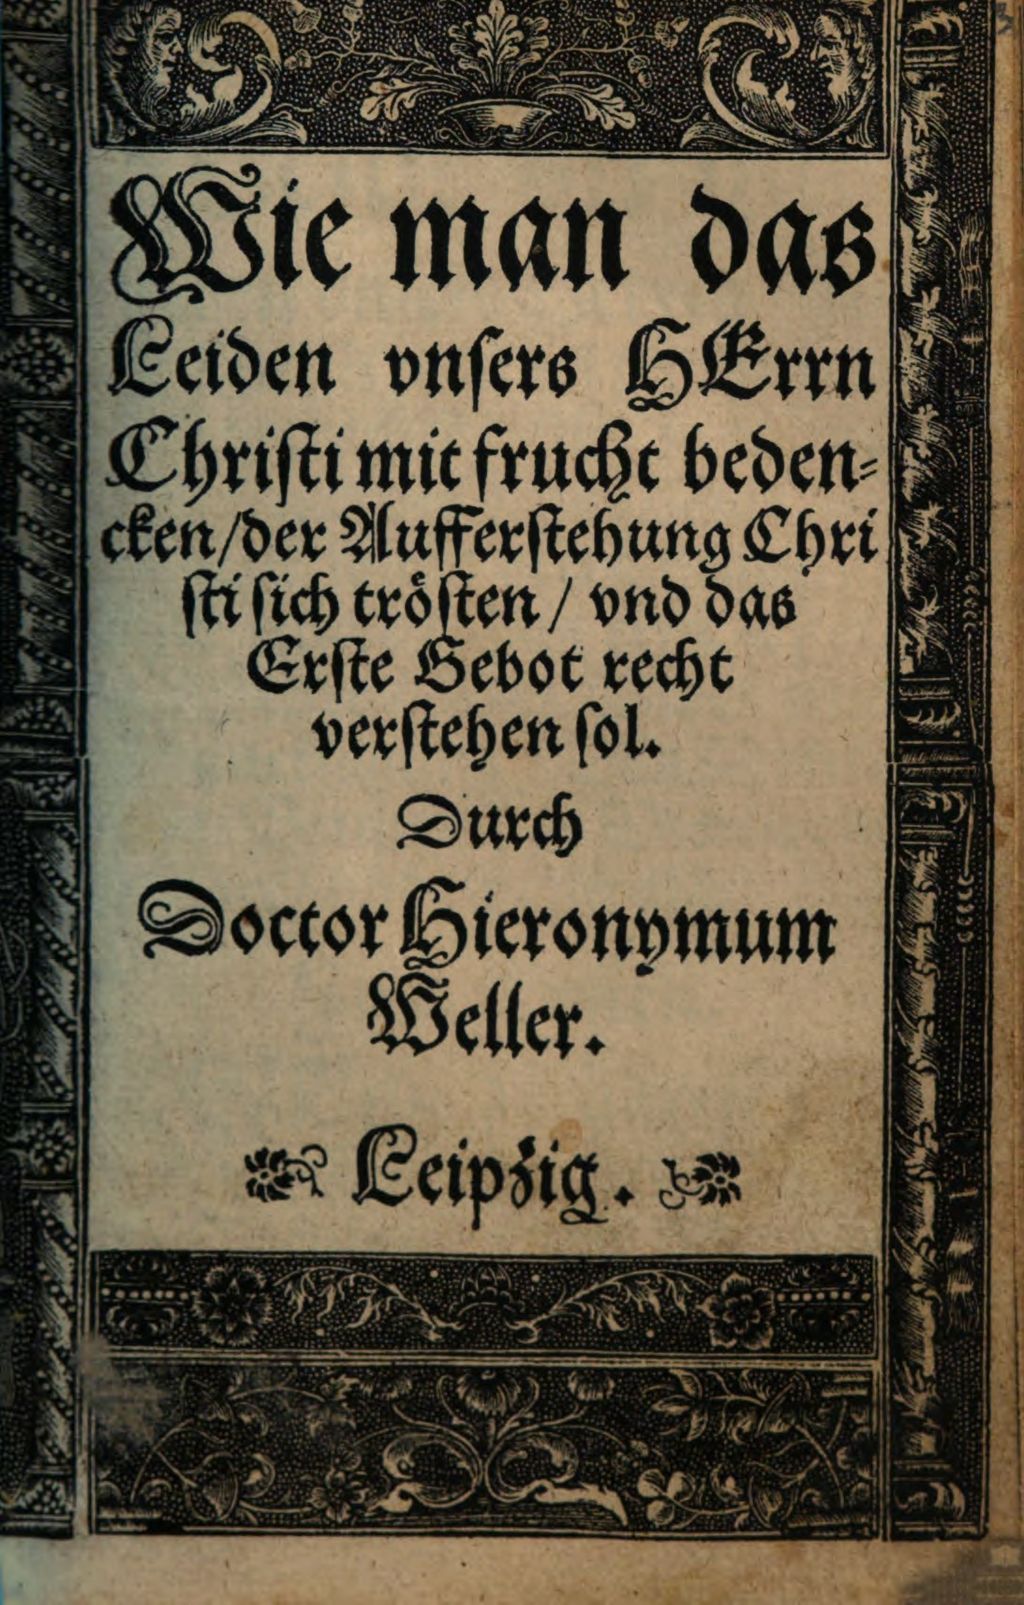 Wie man das
Leiden vnsers HErrn
Christi mit frucht beden-
cken/der Aufferstehung Chri
sti sich trösten / vnd das
Erste Gebot recht
verstehen sol.
Durch
Doctor Hieronymum
Weller.
Leipzig.